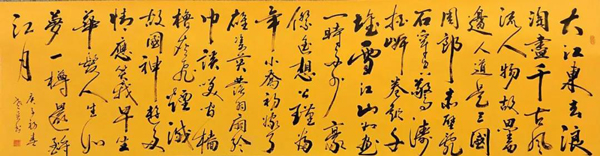 大江東去浪
淘盡千古風
流人物故壘西
邊人道是三國
周郎赤壁亂
石穿空驚濤
拍岸卷起千
堆雪江山如畫
一時多少豪
傑遙想公瑾當
年小喬初嫁了
雄姿英發羽扇綸
巾談笑間檣
櫓灰飛煙滅
故國神遊多
情應笑我早生
華髮人生如
夢一樽還酹
江月